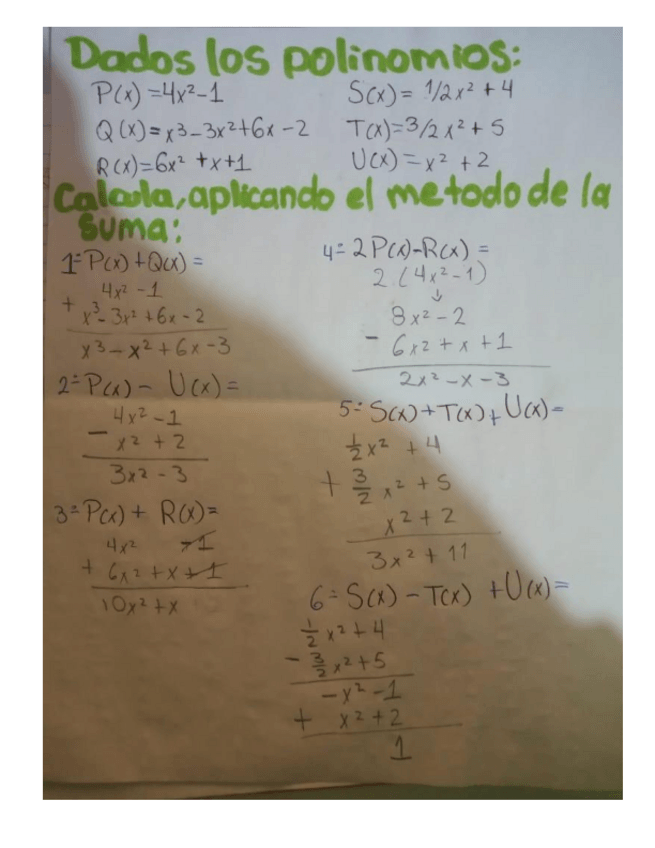 Dados los polinomios:
P(x) = 4x² - 1
Q(x) = x³ - 3x² + 6x - 2
R(x) = 6x² + x + 1
S(x) = 1/2 x² + 4
T(x) = 3/2 x² + 5
U(x) = x² + 2
Calcula, aplicando el metodo de la
suma:
1= P(x) + Q(x) =
4x² - 1
+ x³ - 3x² + 6x - 2
x³ - x² + 6x - 3
2= P(x) - U(x) =
4x² - 1
- x² + 2
3x² - 3
3= P(x) + R(x) =
4x² - 1
+ 6x² + x + 1
10x² + x
4= 2P(x) - R(x) =
2 · (4x² - 1)
↓
8x² - 2
- 6x² + x + 1
2x² - x - 3
5= S(x) + T(x) + U(x) =
1/2 x² + 4
+ 3/2 x² + 5
x² + 2
3x² + 11
6= S(x) - T(x) + U(x) =
1/2 x² + 4
- 3/2 x² + 5
- x² - 1
+ x² + 2
1